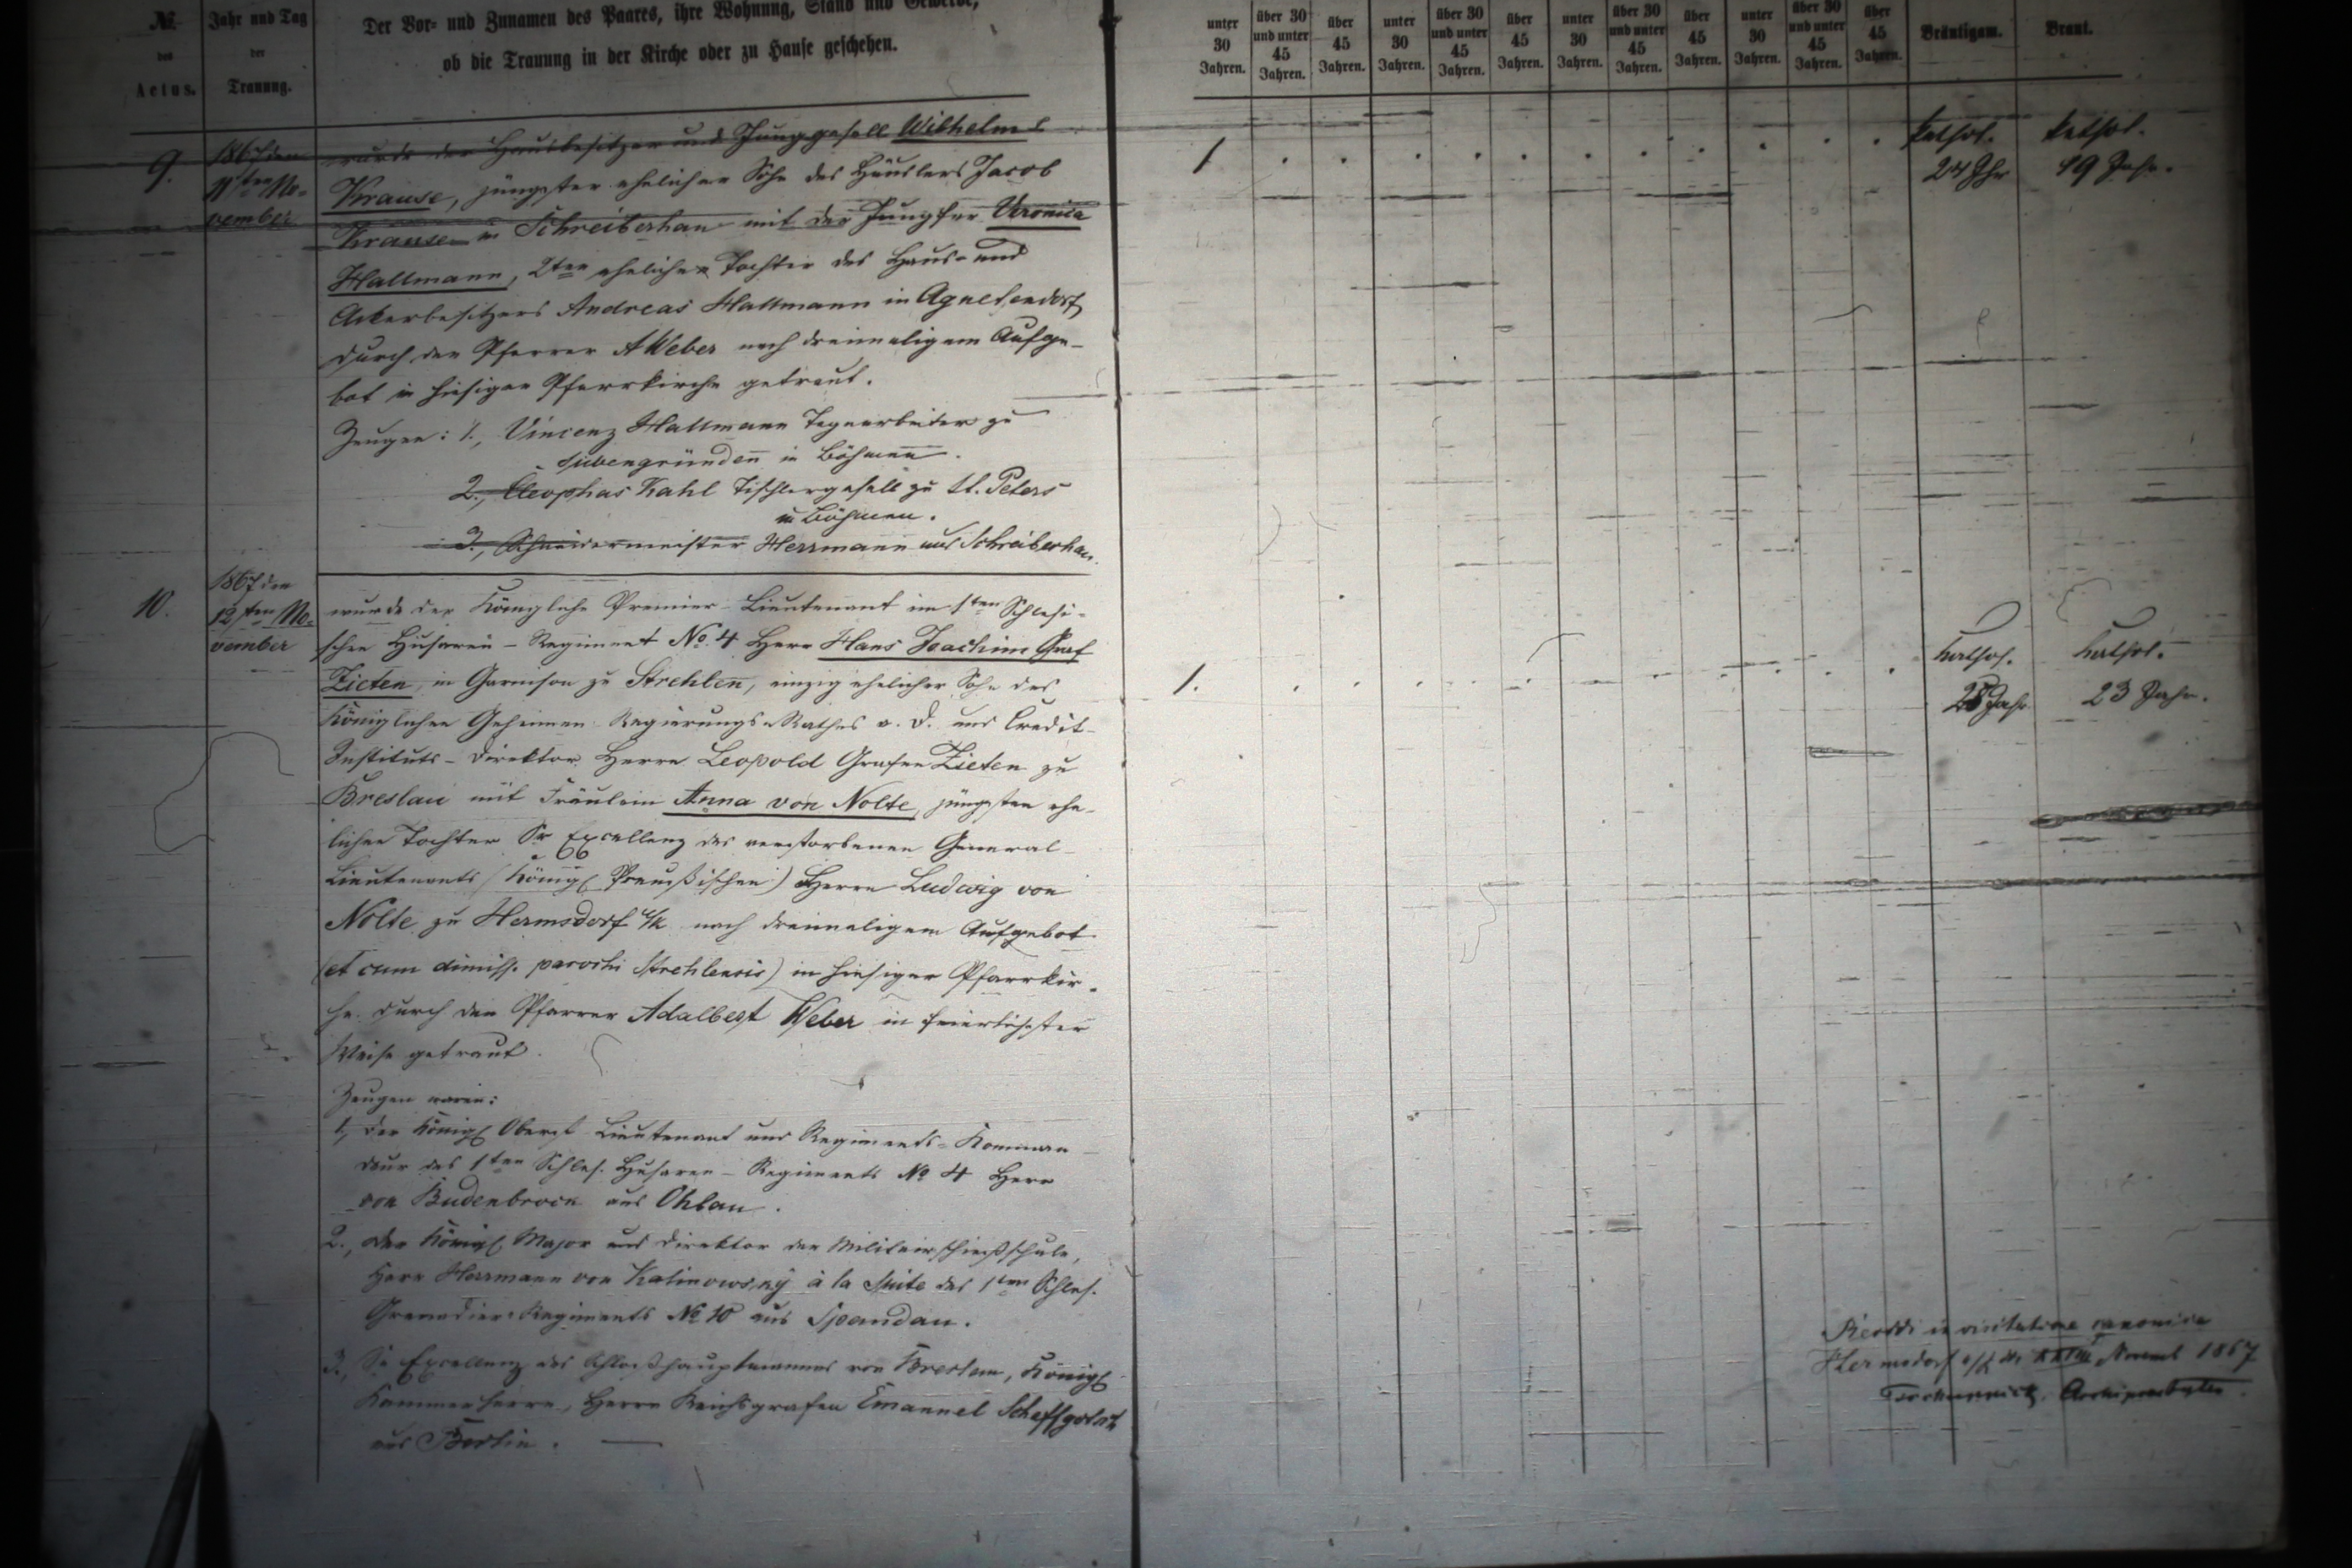 №.
des
Actus.
Jahr und Tag
der
Trauung.
Der Vor- und Zunamen des Paares, ihre Wohnung, Stand und Gewerbe,
ob die Trauung in der Kirche oder zu Hause geschehen.
unter 30 Jahren.
über 30 und unter 45 Jahren.
über 45 Jahren.
unter 30 Jahren.
über 30 und unter 45 Jahren.
über 45 Jahren.
unter 30 Jahren.
über 30 und unter 45 Jahren.
über 45 Jahren.
unter 30 Jahren.
über 30 und unter 45 Jahren.
über 45 Jahren.
Bräutigam.
Braut.
9.
1867 den
11ten No-
vember
wurde der Hausbesitzer und Junggesell Wilhelm
Krause, jüngster ehelicher Sohn des Häuslers Jacob
Krause in Schreiberhau mit der Jungfer Veronica
Hallmann, 2ten ehelichen Tochter des Haus- und
Ackerbesitzers Andreas Hallmann in Agnetendorf
durch den Pfarrer A Weber nach dreimaligem Aufge-
bot in hiesiger Pfarrkirche getraut.
Zeugen: 1., Vincenz Hallmann Tagearbeiter zu
Siebengründen in Böhmen.
2., Cleophas Kahl Tischlergesell zu St. Peters
in Böhmen.
3., Schneidermeister Herrmann aus Schreiberhau.
1
kathol.
24 Jhr
kathol.
19 Jahr.
10.
1867 den
12ten No-
vember
wurde der Königliche Premier-Lieutenant im 1ten Schlesi-
schen Husaren-Regiment No. 4 Herr Hans Joachim Graf
Zieten, in Garnison zu Strehlen, einzig ehelicher Sohn des
Königlichen Geheimen Regierungs-Rathes a. D. und Credit-
Instituts-Direktor Herrn Leopold Grafen Zieten zu
Breslau mit Fräulein Anna von Nolte, jüngsten ehe-
lichen Tochter Sr Excellenz des verstorbenen General-
Lieutenants (Königl Preußischen) Herrn Ludwig von
Nolte zu Hermsdorf u/k nach dreimaligem Aufgebot
(et cum dimiss. parochi Strehlensis) in hiesiger Pfarrkir-
che durch den Pfarrer Adalbert Weber in feierlichster
Weise getraut.
Zeugen waren:
1., der Königl Oberst-Lieutenant und Regiments-Komman-
deur des 1ten Schles. Husaren-Regiments No 4 Herr
von Budenbrock aus Ohlau.
2., der Königl Major und Direktor der Militairschießschule,
Herr Herrmann von Kalinowsky à la Suite des 1ten Schles.
Grenadier-Regiments No 10 aus Spandau.
3., Se Excellenz des Schloßhauptmannes von Breslau, Königl
Kammerherrn, Herrn Reichsgrafen Emanuel Schaffgotsch
aus Berlin.
1.
kathol.
28 Jahr
kathol.
23 Jahr.
in visitatione canonica
Hermsdorf u/k Novemb 1867
Archipresbyter.